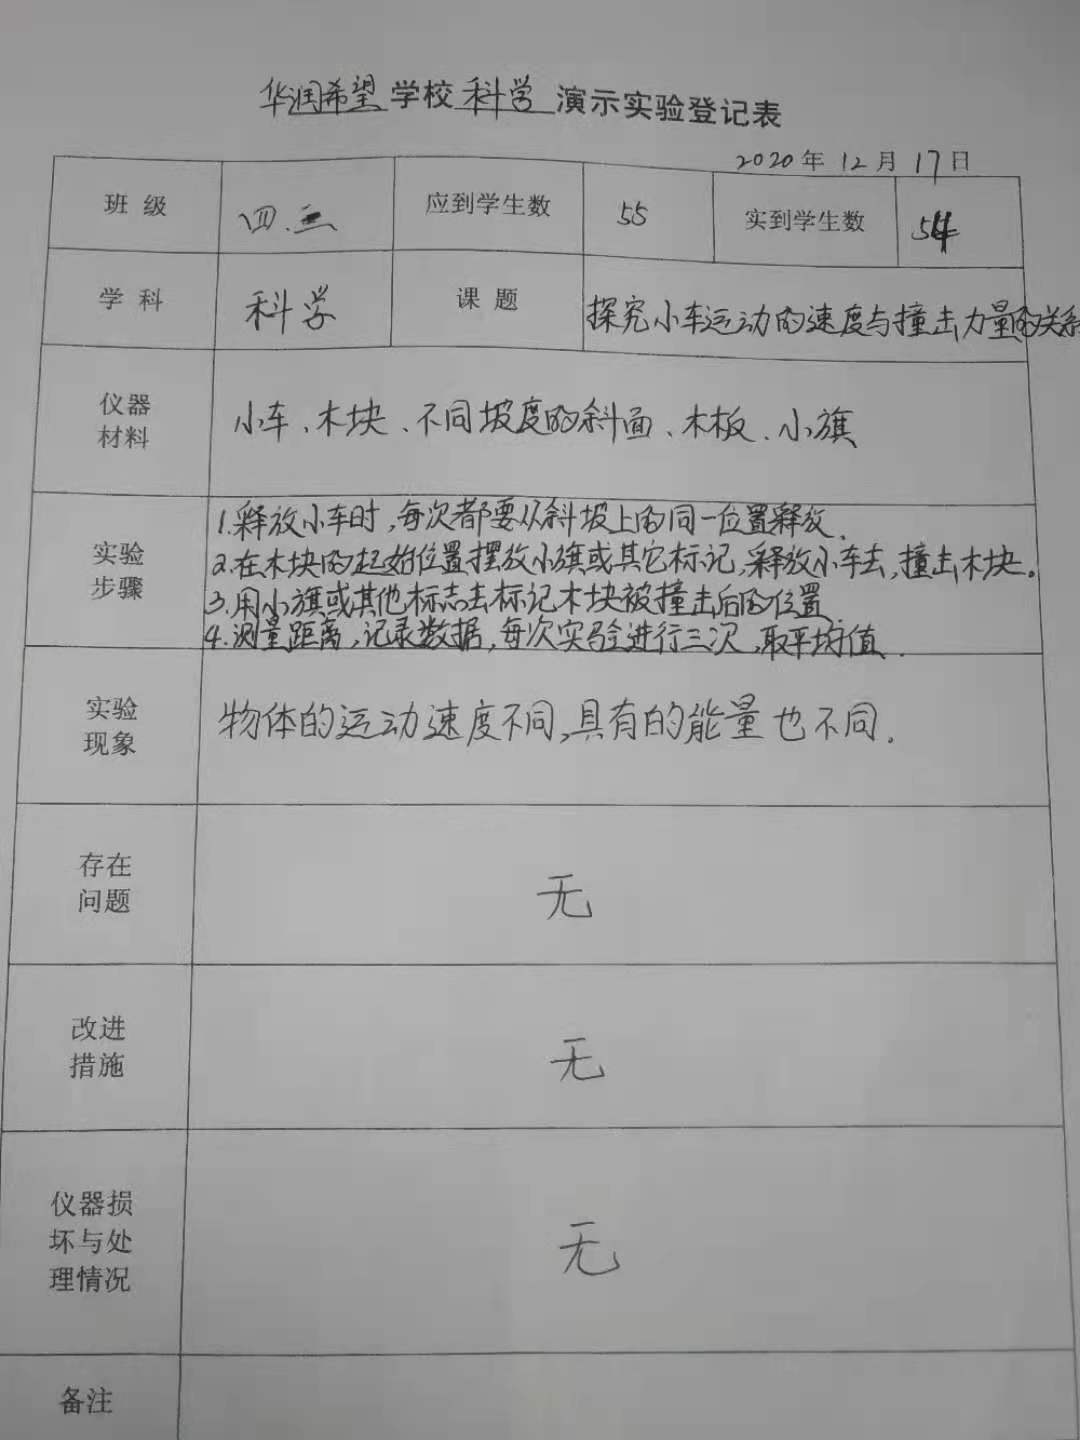 华润希望学校科学演示实验登记表
2020年12月17日
班级 四.三 应到学生数 55 实到学生数 54
学科 科学 课题 探究小车运动的速度与撞击力量的关系
仪器
材料
小车、木块、不同坡度的斜面、木板、小旗
实验
步骤
1.释放小车时,每次都要从斜坡上的同一位置释放.
2.在木块的起始位置摆放小旗或其它标记,释放小车去,撞击木块。
3.用小旗或其他标志去标记木块被撞击后的位置
4.测量距离,记录数据,每次实验进行三次,取平均值.
实验
现象
物体的运动速度不同,具有的能量也不同.
存在
问题
无
改进
措施
无
仪器损
坏与处
理情况
无
备注